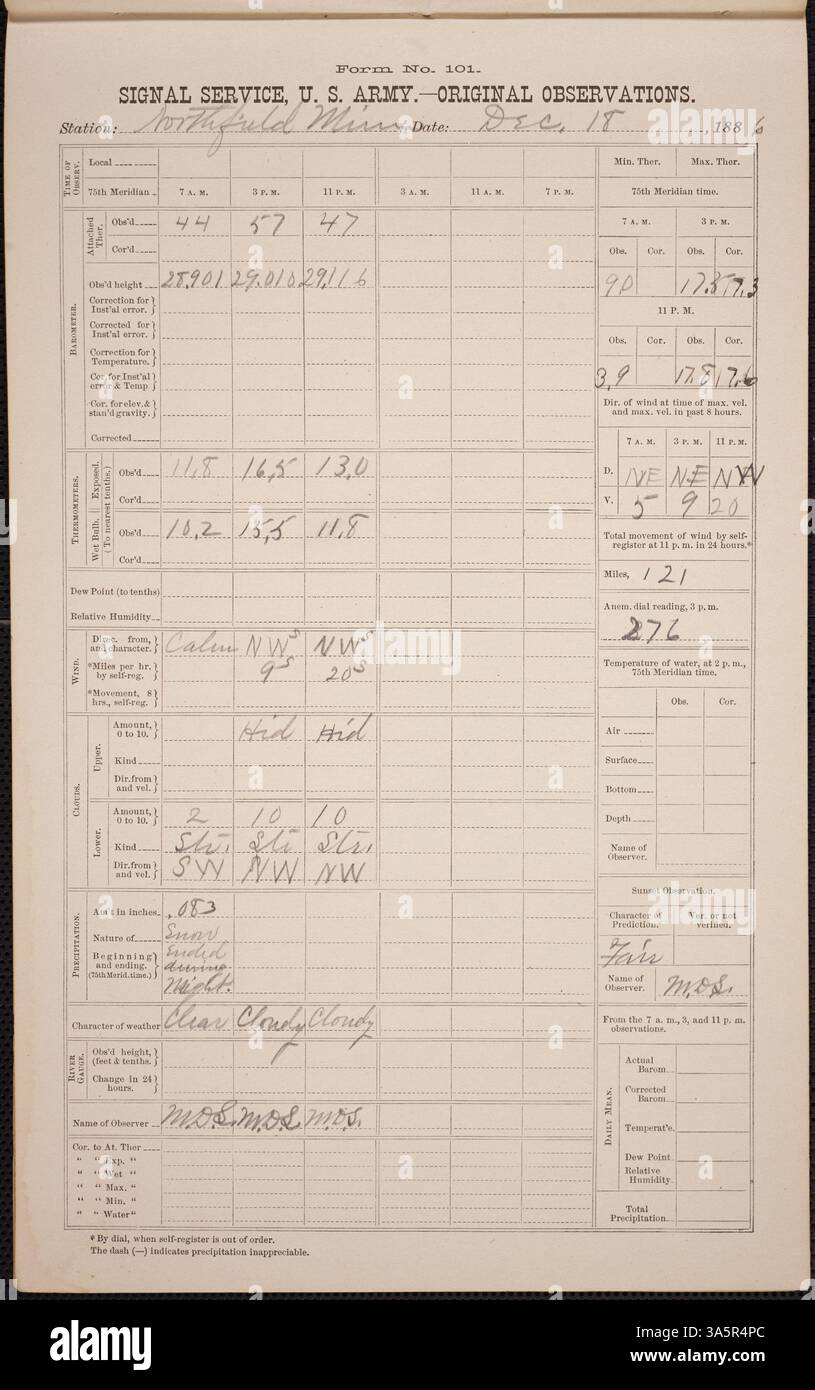 Form No. 101.
SIGNAL SERVICE, U. S. ARMY.—ORIGINAL OBSERVATIONS.
Station: Northfield Minn Date: Dec. 18 , 1886
TIME OF OBSERV. Local
75th Meridian 7 A. M. 3 P. M. 11 P. M. 3 A. M. 11 A. M. 7 P. M.
BAROMETER.
Attached Ther. Obs'd 44 57 47
Cor'd
Obs'd height 28.901 29.010 29.116
Correction for Inst'al error.
Corrected for Inst'al error.
Correction for Temperature.
Cor. for Inst'al error & Temp
Cor. for elev. & stan'd gravity.
Corrected
THERMOMETERS.
(To nearest tenths.)
Exposed. Obs'd 11,8 16,5 13,0
Cor'd
Wet Bulb. Obs'd 10,2 15,5 11,8
Cor'd
Dew Point (to tenths)
Relative Humidity
WIND.
Direc. from, and character. Calm NWs NWs
*Miles per hr. by self-reg. 9s 20s
*Movement, 8 hrs., self-reg.
CLOUDS.
Upper. Amount, 0 to 10. Hid Hid
Kind
Dir. from and vel.
Lower. Amount, 0 to 10. 2 10 10
Kind Str. Str Str.
Dir. from and vel. SW NW NW
PRECIPITATION.
Am't in inches .083
Nature of Snow
Beginning and ending. (75th Merid. time.) Ended during Night.
Character of weather Clear Cloudy Cloudy
RIVER GAUGE.
Obs'd height, (feet & tenths.)
Change in 24 hours.
Name of Observer M.D.S. M.D.S. M.D.S.
Cor. to At. Ther
" " Exp. "
" " Wet "
" " Max. "
" " Min. "
" " Water "
* By dial, when self-register is out of order.
The dash (—) indicates precipitation inappreciable.
Min. Ther. Max. Ther.
75th Meridian time.
7 A. M. 3 P. M.
Obs. Cor. Obs. Cor.
90 17.5 17.3
11 P. M.
Obs. Cor. Obs. Cor.
3,9 17.8 17.6
Dir. of wind at time of max. vel. and max. vel. in past 8 hours.
7 A. M. 3 P. M. 11 P. M.
D. NE NE NW
V. 5 9 20
Total movement of wind by self-register at 11 p. m. in 24 hours.*
Miles, 121
Anem. dial reading, 3 p. m.
276
Temperature of water, at 2 p. m., 75th Meridian time.
Obs. Cor.
Air
Surface
Bottom
Depth
Name of Observer.
Sunset Observation.
Character of Prediction. Ver. or not verified.
Fair
Name of Observer. M.D.S.
From the 7 a. m., 3, and 11 p. m. observations.
DAILY MEAN.
Actual Barom.
Corrected Barom.
Temperat'e.
Dew Point
Relative Humidity
Total Precipitation.
alamy
a
alamy
Image ID: 3A5R4PC
www.alamy.com